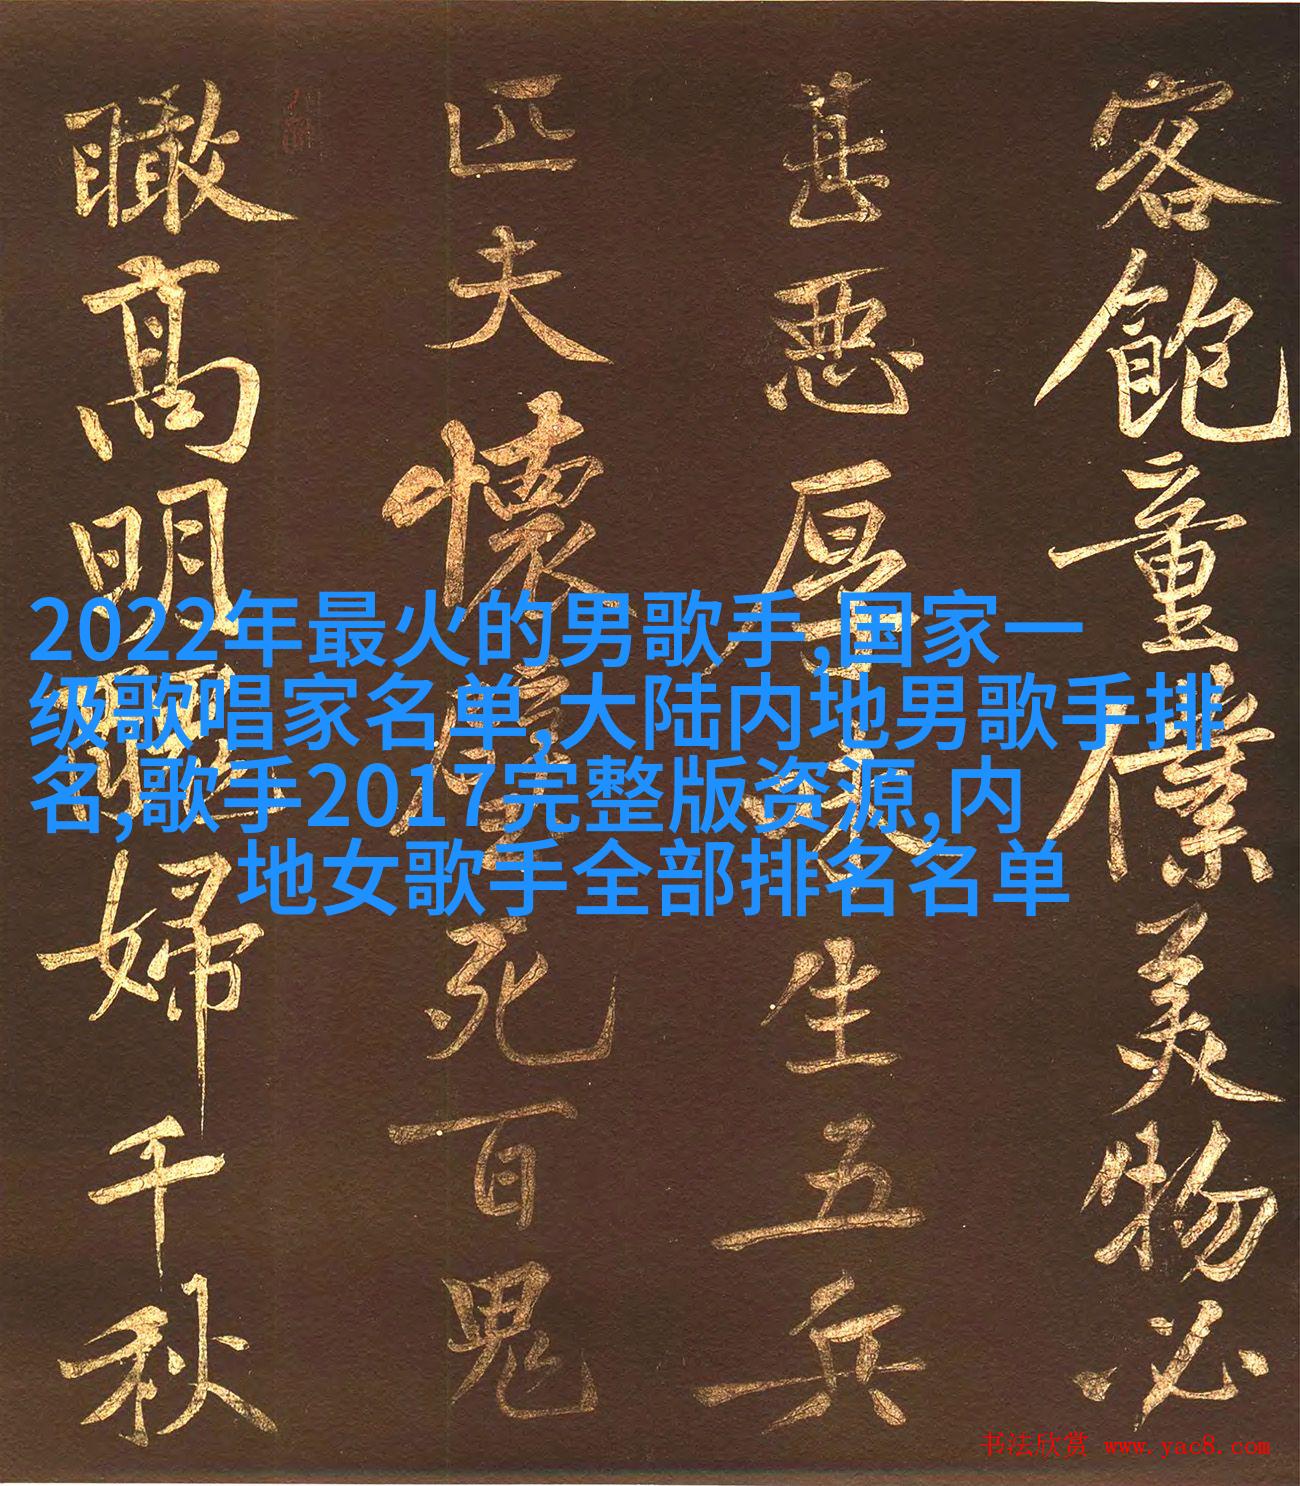 客飽童僕美物必
甚惡厚味生五兵
匹夫懷璧死百鬼
瞰高明醜婦千秋
2022年最火的男歌手,国家一
级歌唱家名单,大陆内地男歌手排
名,歌手2017完整版资源,内
地女歌手全部排名名单
书法欣赏 www.yac8.com